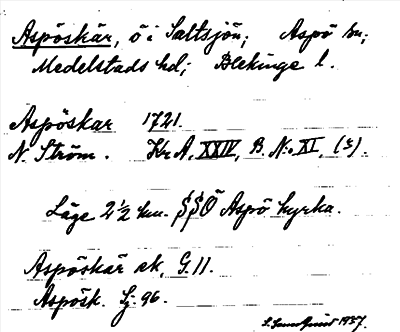 Aspöskär, ö i Saltsjön; Aspö sn;
Medelstads hd; Blekinge l.
Aspöskar 1721.
N. Ström. Kr A, XXIV, B. No XI, (s).
Läge 2 1/2 km. SSÖ Aspö kyrka.
Aspöskär ek, G. 11.
Aspösk. Sj. 96.
1937.